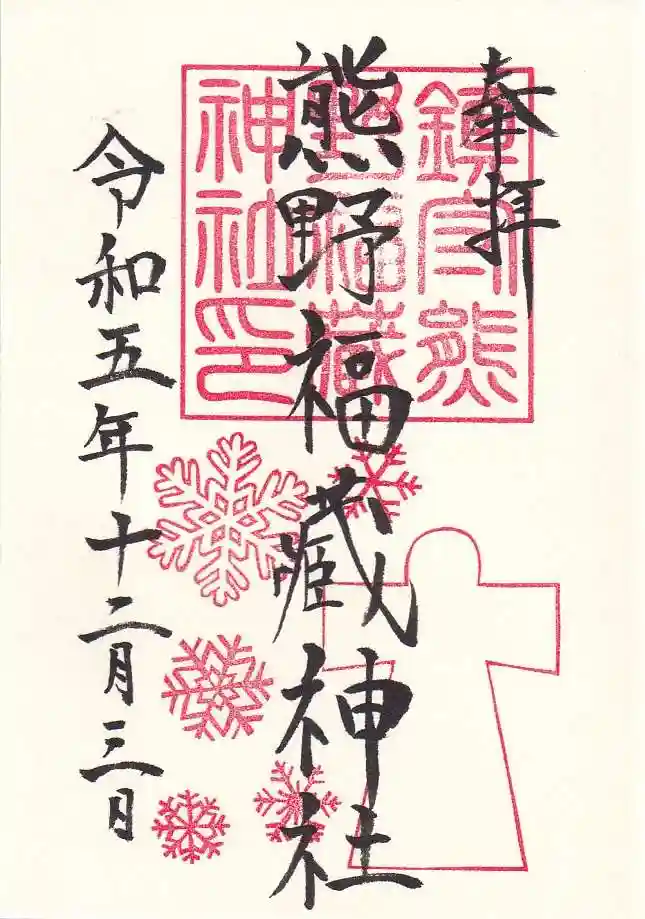 奉拝
熊野福蔵神社
令和五年十二月三日
鎮守熊
野福蔵
神社印